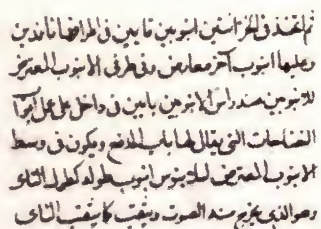 ثم اتخذ في الخزانتين انبوبين ثابتين في اطرافهما نافذين
وعليها انبوب آخر معارض وفي طرفي الانبوب المعترض
للانبوبين عند راس الانبوبين بابين في داخل على عمل ابواب
النضاحات التي يقال لها باب المدفع ويكون في وسط
الانبوب المعترض انبوب طوله كطول الناى
وهو الذي يخرج منه الصوت ويثقب كما يثقب الناى